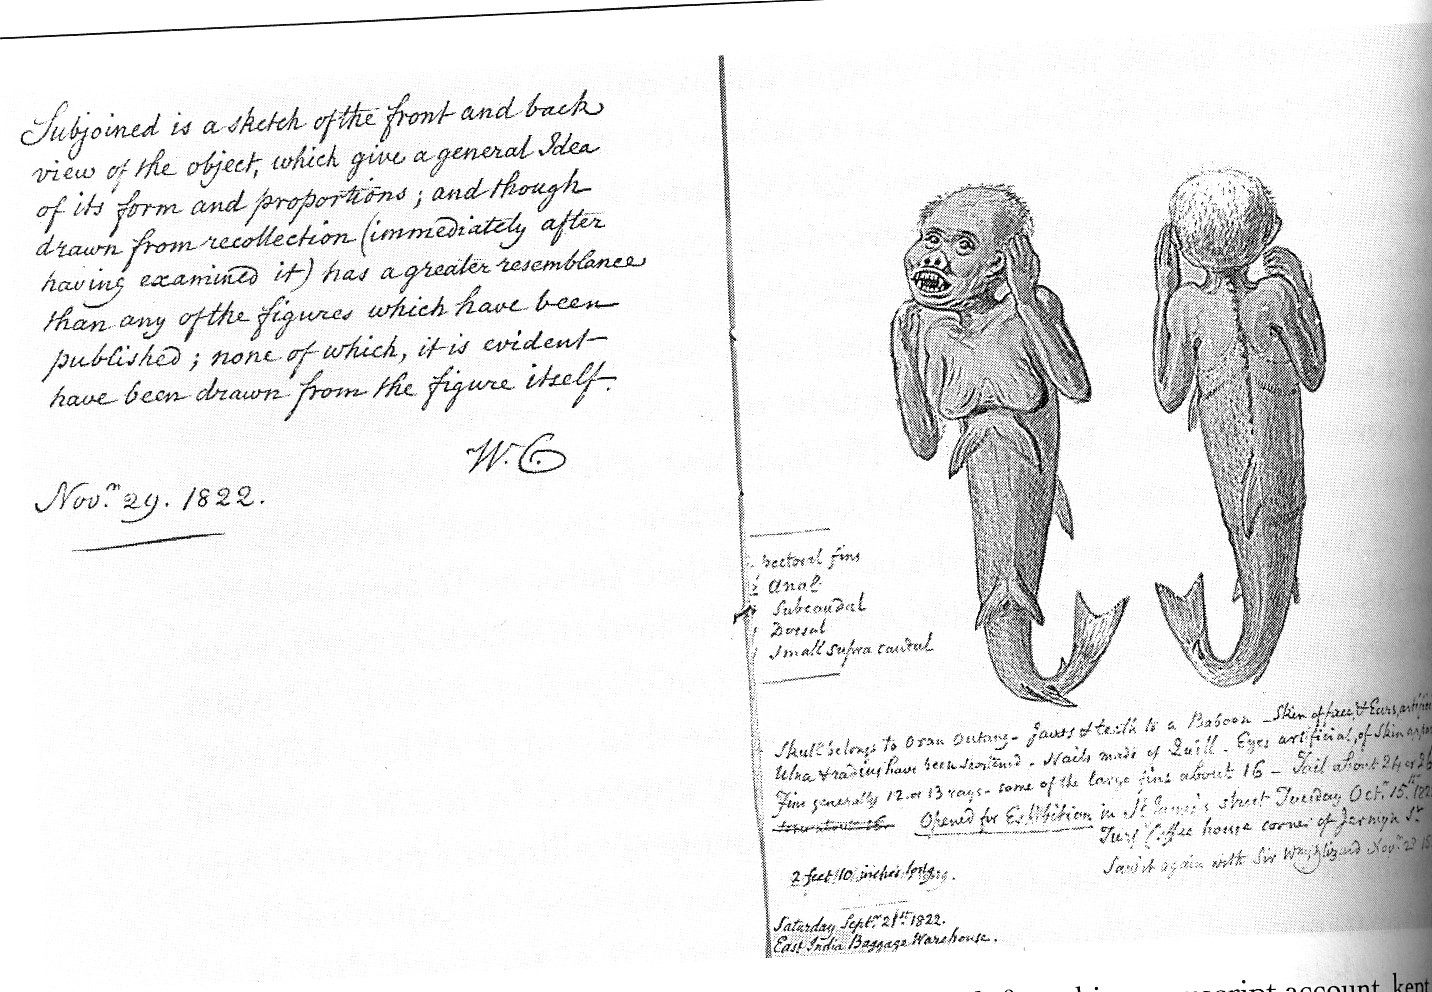 Subjoined is a sketch of the front and back
view of the object, which give a general Idea
of its form and proportions; and though
drawn from recollection (immediately after
having examined it) has a greater resemblance
than any of the figures which have been
published; none of which, it is evident
have been drawn from the figure itself.
W. C.
Nov.ʳ 29. 1822.
pectoral fins
Anal
Subcaudal
Dorsal
Small supra caudal
Skull belongs to Oran Outang - Jaws & teeth to a Baboon - Skin of face, & Ears, artifi
Ulna & radius have been shortened - Nails made of Quill - Eyes artificial, of Skin
Fins generally 12 or 13 rays - some of the large fins about 16 - Tail about 24 or 26
Opened for Exhibition in St James's street Tuesday Octʳ 15.th 182
Turf Coffee house corner of Jermyn St
Saw it again with Sir Wm Blizard Novʳ
2 feet 10 inches long.
Saturday Septʳ 21st 1822.
East India Baggage Warehouse.
script account, kept